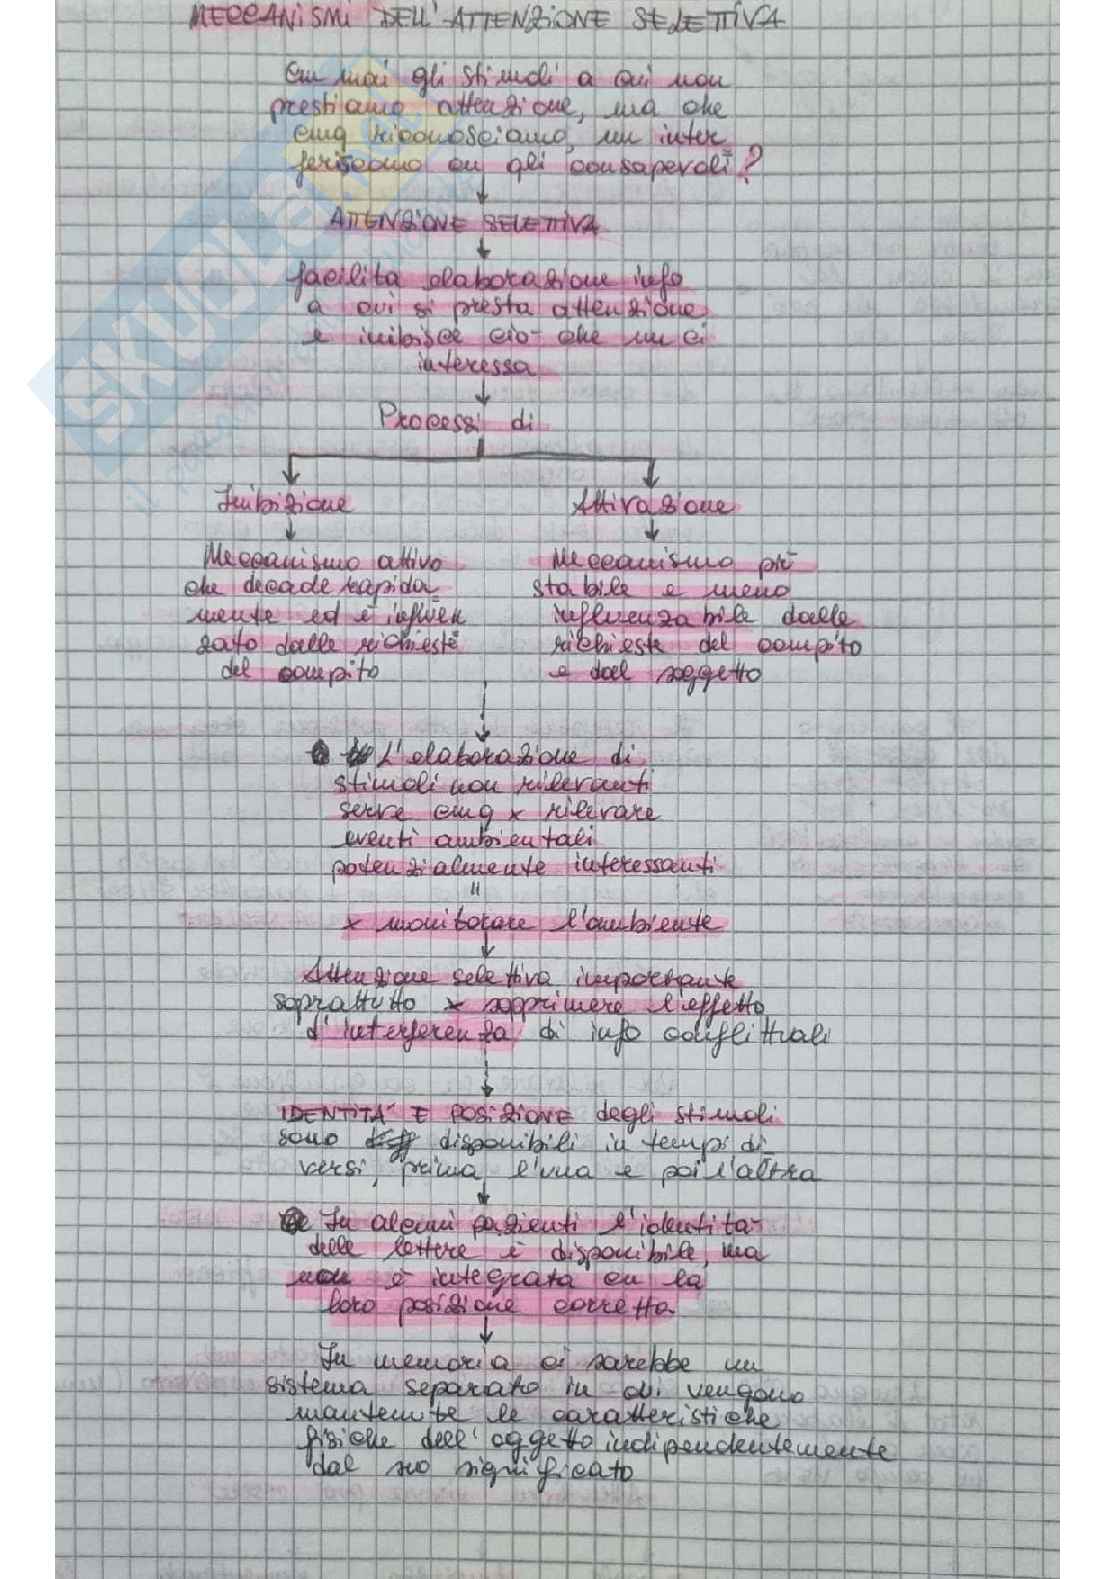 MECCANISMI DELL'ATTENZIONE SELETTIVA
Cm mai gli stimoli a cui non
prestiamo attenzione, ma che
cmq riconosciamo, nn inter
feriscono cn gli consapevoli?
ATTENZIONE SELETTIVA
facilita elaborazione info
a cui si presta attenzione
e inibisce ciò che nn ci
interessa
Processi di
Inibizione
Attivazione
Meccanismo attivo
che decade rapida
mente ed è influen
zato dalle richieste
del compito
Meccanismo più
stabile e meno
influenzabile dalle
richieste del compito
e dal soggetto
L'elaborazione di
stimoli non rilevanti
serve cmq x rilevare
eventi ambientali
potenzialmente interessanti
=
x monitorare l'ambiente
Attenzione selettiva importante
soprattutto x sopprimere l'effetto
d'interferenza di info conflittuali
IDENTITÀ E POSIZIONE degli stimoli
sono disponibili in tempi di
versi, prima l'una e poi l'altra
In alcuni pazienti l'identità
delle lettere è disponibile, ma
non è integrata cn la
loro posizione corretta
In memoria ci sarebbe un
sistema separato in cui vengono
mantenute le caratteristiche
fisiche dell'oggetto indipendentemente
dal suo significato
SKUOLA.net